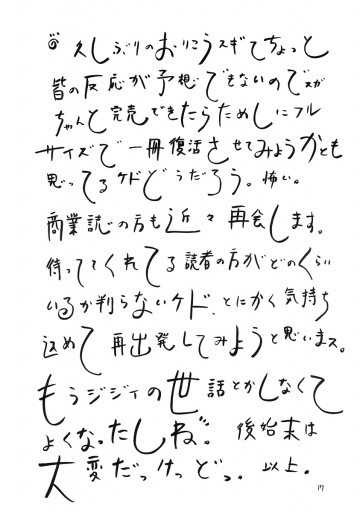 ◎久しぶりのおりこうスギてちょっと
皆の反応が予想できないのでスガ
ちゃんと完売できたらためしにフル
サイズで一冊復活させてみようかとも
思ってるケドどうだろう。怖い。
商業誌の方も近々再会します。
待っててくれてる読者の方がどのくらい
いるか判らないケド、とにかく気持ち
込めて再出発してみようと思いまス。
もうジジィの世話とかしなくて
よくなったしね。後始末は
大変だったけっどっ。以上。
17